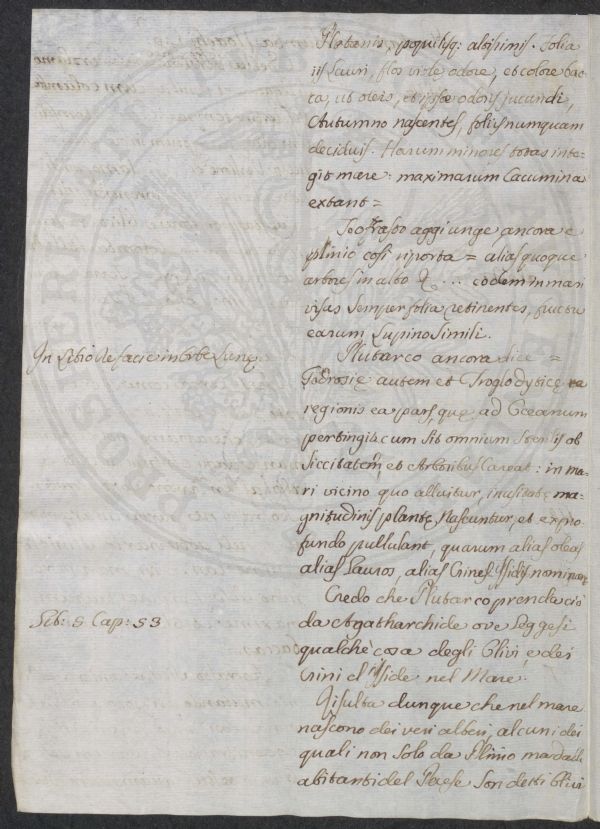 Platanis, populisq: altissimis. Folia
iis Lauri, flos viole odore, et colore bac-
ca, ut oleis, et ipsæ odoris jucundi,
Autumno nascentes, foliis numquam
deciduis. Harum minores totas inte-
git mare: maximarum Cacumina
extant =
Teofrasto aggiunge ancora e
plinio così riporta = alias quoque
arbores in alto &c ... eodem in mari
visas semper folia retinentes, fructu
earum Lupino simili.
In Libro de facie in Orbe Lunę.
Plutarco ancora dice =
Godrosię autem et Troglodyticę
regionis ea pars, quę ad Oceanum
pertingit, cum sit omnium sterilis ob
siccitatem, et Arboribus Careat: in ma-
ri vicino quo alluitur, inusitatę ma-
gnitudinis plantę Nascuntur, et ex pro-
fundo pullulant, quarum alias oleas
alias Lauros, alias Crines Issidis nominant
Credo che Plutarco prenda ciò
Lib: 5 Cap: 53
da Agatharchide ove Leggesi
qualchè cosa degli Olivi, e dei
Crini d'Isside nel Mare.
Risulta dunque che nel mare
nascono dei veri alberi, alcuni dei
quali non solo da Plinio ma dalli
abitanti del Paese son detti Olivi